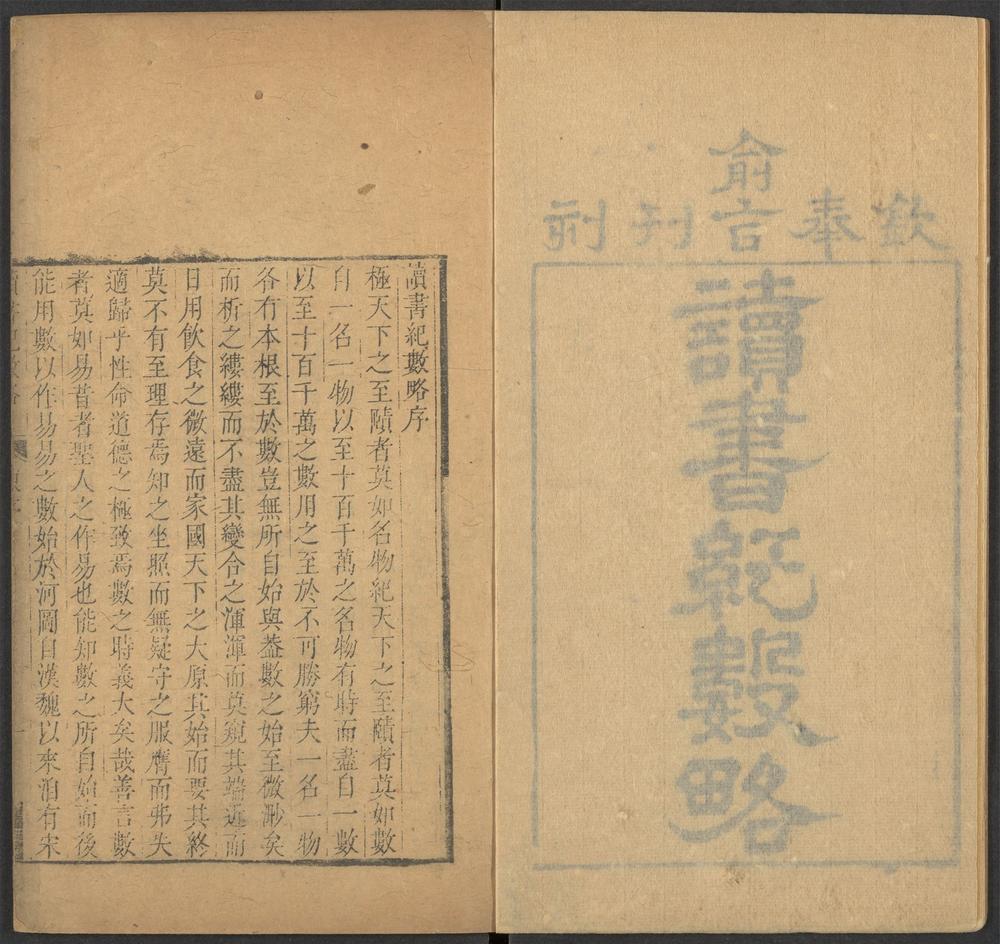 欽奉
俞旨刊刻
讀書紀數略
讀書紀數略序
極天下之至賾者莫如名物紀天下之至賾者莫如數
自一名一物以至十百千萬之名物有時而盡自一數
以至十百千萬之數用之至於不可勝窮夫一名一物
各有本根至於數豈無所自始與葢數之始至微渺矣
而析之縷縷而不盡其變合之渾渾而莫窺其端近而
日用飲食之微遠而家國天下之大原其始而要其終
莫不有至理存焉知之坐照而無疑守之服膺而弗失
適歸乎性命道德之極致焉數之時義大矣哉善言數
者莫如易昔者聖人之作易也能知數之所自始而後
能用數以作易易之數始於河圖自漢魏以來洎有宋
讀書紀數略